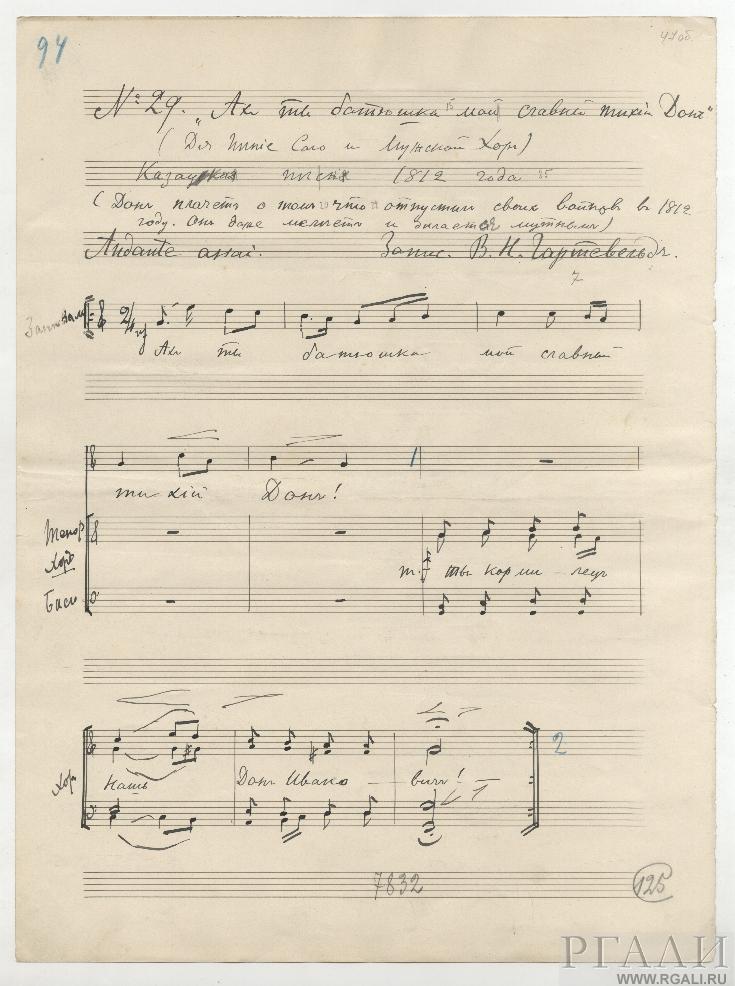 94
41об.
№ 29. "Ах ты батюшка мой славный тихій Донъ"
(Для пѣнія Соло и Мужской Хоръ)
Казацкая пѣсня 1812 года
(Донъ плачетъ о томъ что отпустилъ своихъ воиновъ въ 1812
году. Онъ даже мелѣетъ и дѣлается мутнымъ)
Andante assai. Запис. В. Н. Гартевельдъ.
7
Запѣвало 2/4 mf
Ах ты батюшка мой славный
1
тихій Донъ!
Тенор
Хоръ
Басы
m. f Ты корми - лецъ
2
Хоръ
нашъ Донъ Ивано - вичъ!
7832
125
РГАЛИ
WWW.RGALI.RU